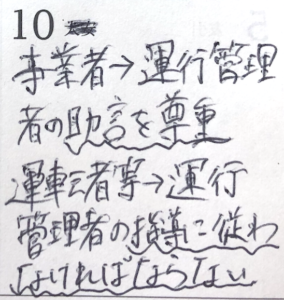 10
事業者→運行管理
者の助言を尊重
運転者等→運行
管理者の指導に従わ
なければならない